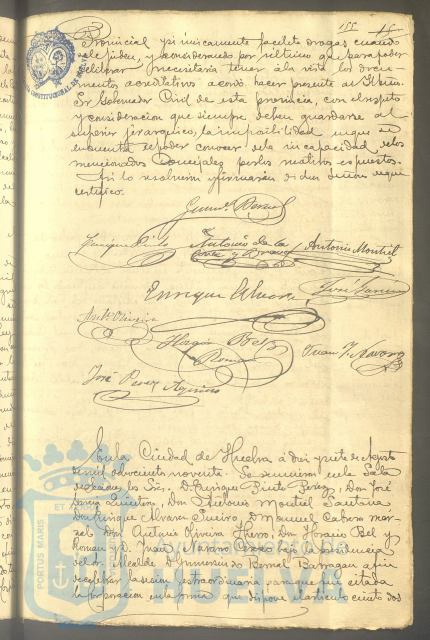 155
Provincial y si unicamente facilita drogas cuando
se le piden, y considerando por ultimo que para poder
deliberar precisaria tener á la vista los docu-
mentos acreditativos acordó hacer presente al Iltmo.
Sr Gobernador Civil de esta provincia, con el respeto
y consideracion que siempre deben guardarse al
superior jerarquico, la imposibilidad en que se
encuentra de poder conocer de la incapacidad de los
mencionados Concejales por los motivos expuestos.
Asi lo resolvieron y firmarán de dichos Señores de que
certifico.
Bernal
Enrique Pinto Antonio de la Antonio Montiel
Corte y
Enrique Alvarez José
Antº Oliveira
Horacio Bel
Roman
Juan Navarro
José Perez
En la Ciudad de Huelva á diez y siete de Agosto
de mil ochocientos noventa. Se reunieron en la Sala
los Sres. D. Enrique Pinto Perez, Don José
Garcia Don Antonio Montiel Santana
Don Enrique Alvarez D. Manuel
Don Antonio Oliveira Don Horacio Bel y
Roman y D. Juan Navarro bajo la presidencia
del Sr. Alcalde D. Bernal Barragan a fin
de celebrar la sesion extraordinaria para que fué citada
la Corporacion en la forma que dispone el articulo ciento dos
PORTUS MARIS ET
Ayuntamiento de
HUELVA